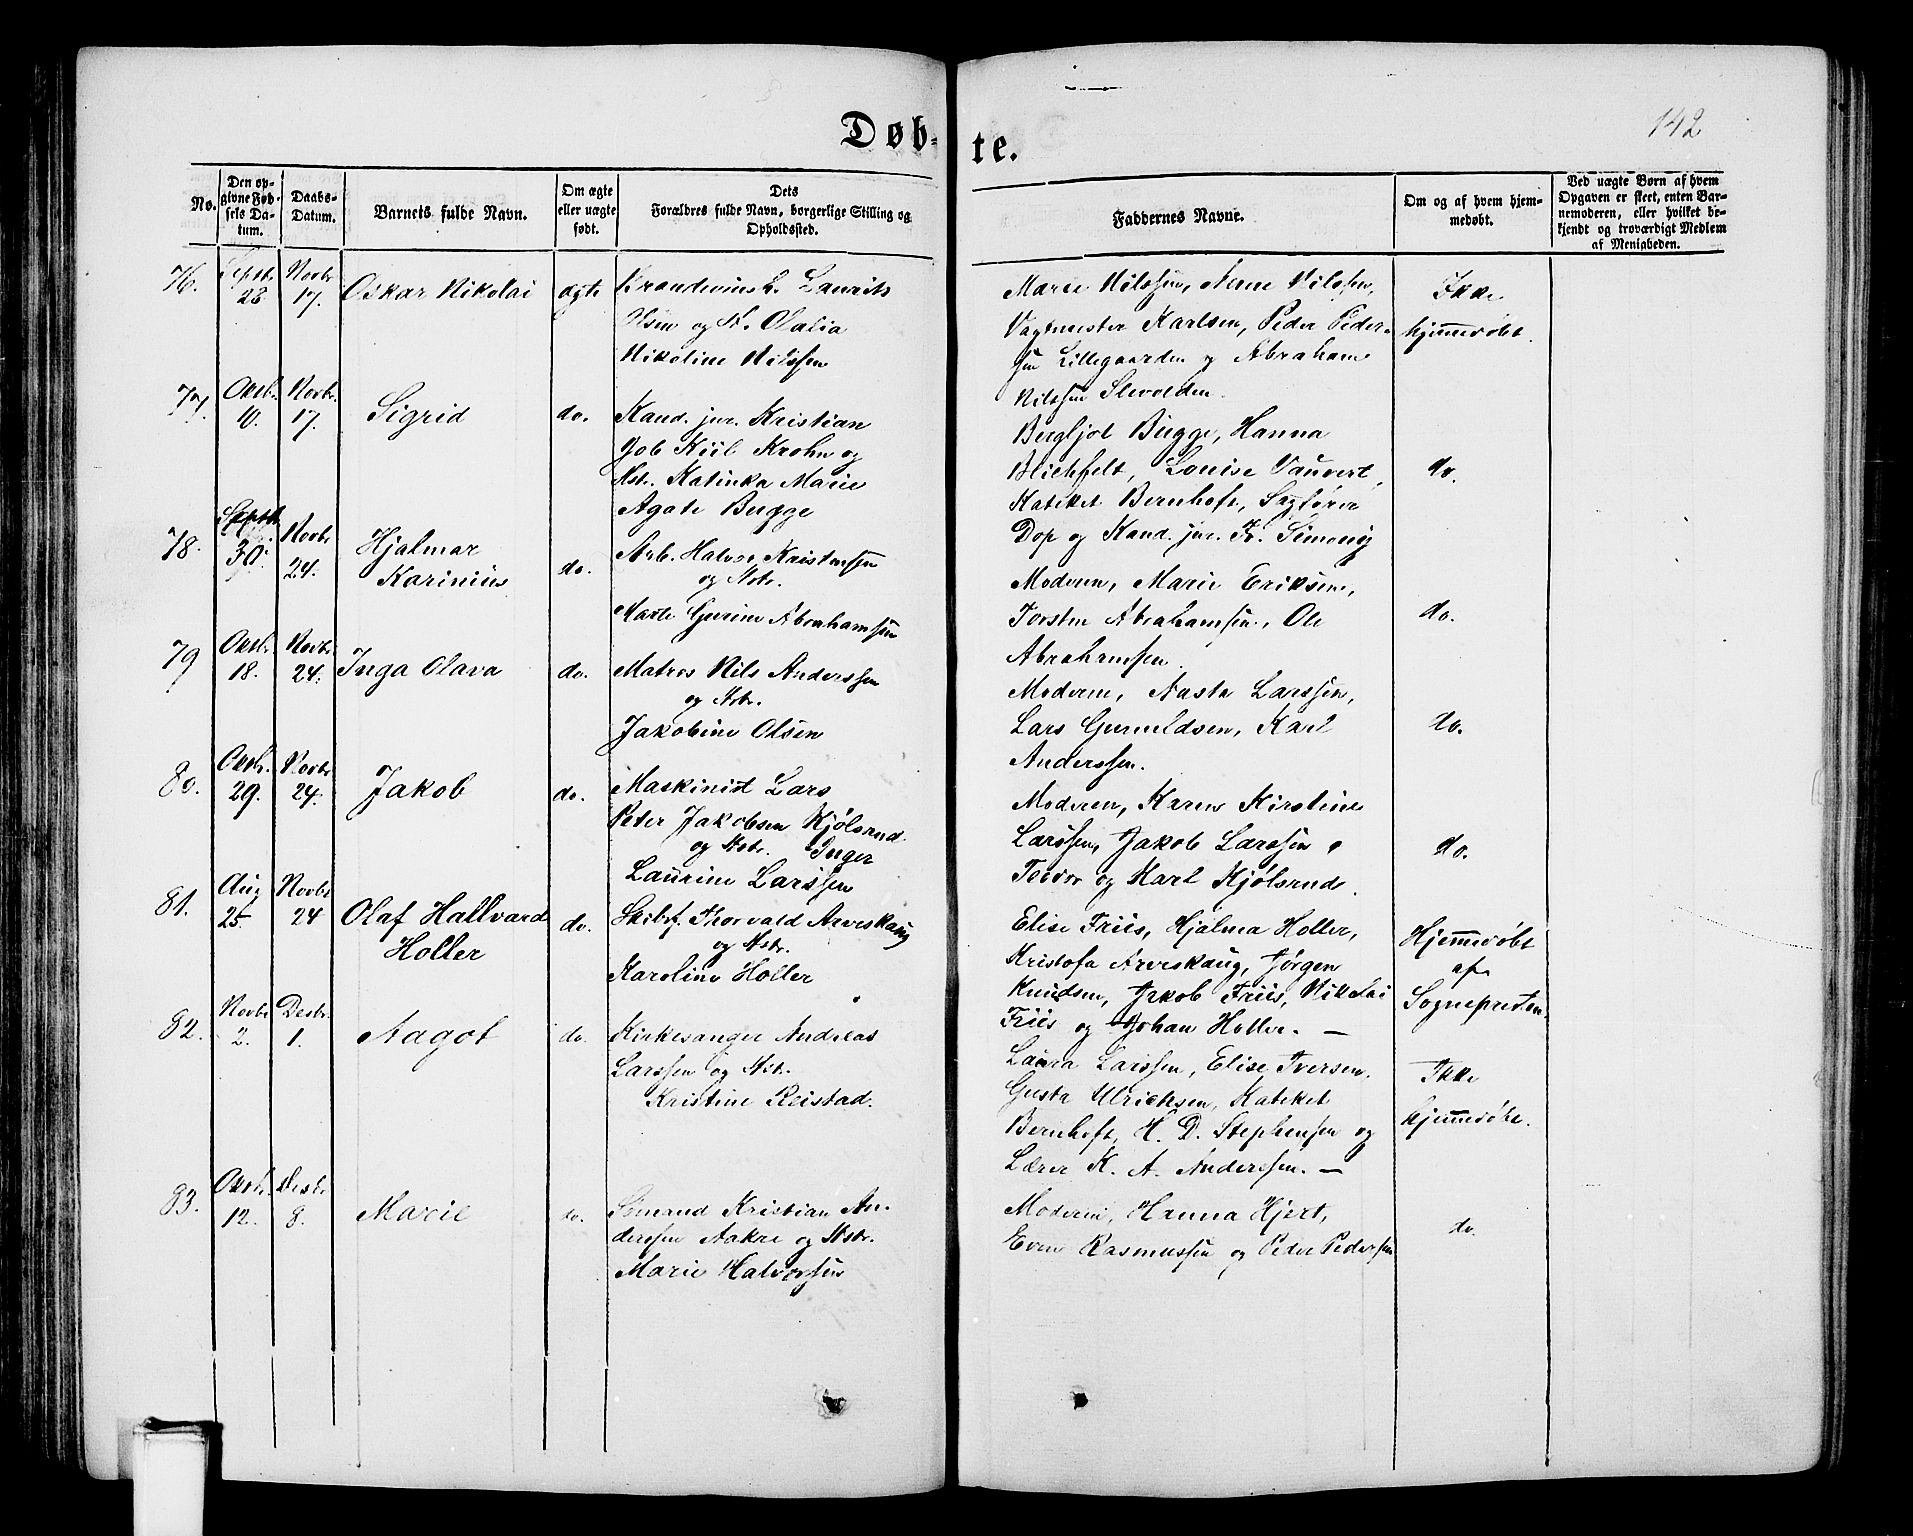 142
Døb-te.
No.
Den opgivne Fødsels Datum.
Daabs-Datum.
Barnets fulde Navn.
Om ægte eller uægte født.
Dets Forældres fulde Navn, borgerlige Stilling og Opholdssted.
Faddernes Navne.
Om og af hvem hjemmedøbt.
Ved uægte Børn af hvem Opgaven er skeet, enten Barnemoderen, eller hvilket bekjendt og troværdigt Medlem af Menigheden.
76.
Septbr 28
Novbr 17.
Oskar Nikolai
ægte
Brændevinsh. Laurits
Olsen og H. Olalia
Nikoline Nilssen
Marie Nilssen, Nilssen,
Vagtmester Karlsen, Peder Peder-
sen Lillegaarden og Abraham
Nilssen Slevolden.
Ikke
hjemmedøbt.
77.
Oktbr. 10.
Novbr. 17.
Sigrid
do.
Kand. jur. Kristian
Job Kiil Krohn og
Hstr. Katinka Marie
Agate Bugge
Bergljot Bugge, Hanna
Blichfelt, Louise Vauvert,
Kateket Bernhoft, Sagfører
Dop og Kand. jur. Fr. Simonig
do.
78.
Septbr 30.
Novbr 24.
Hjalmar
Karinius
do.
Arb. Halvor Kristensen
og Hstr.
Marte Gurine Abrahamsen
Moderen, Marie Eriksen,
Torsten Abrahamsen, Ole
Abrahamsen.
do.
79
Oktbr. 18.
Novbr. 24.
Inga Olava
do.
Matros Nils Anderssen
og Hstr.
Jakobine Olsen
Moderen, Aasta Larssen,
Lars Gunuldsen, Karl
Anderssen.
do.
80.
Oktbr. 29.
Novbr 24.
Jakob
do.
Maskinist Lars
Peter Jakobsen Kjølsrud
og Hstr. Inger
Laurine Larssen
Moderen, Karen Kirstine
Larssen, Jakob Larssen,
Teodor og Karl Kjølsrud.
do.
81.
Aug 25.
Novbr 24
Olaf Hallvard
Holler
do.
Skibsf. Thorvald Arveskaug
og Hstr.
Karoline Holler
Elise Friis, Hjalma Holler,
Kristofa Arveskaug, Jørgen
Knudsen, Jakob Friis, Nikolai
Friis og Johan Holler. —
Hjemmedøbt
af
Sognepresten.
82.
Novbr 2.
Desbr. 1.
Aagot
do.
Kirkesanger Andreas
Larssen og Hstr.
Kristine Reistad.
Laura Larssen, Elise Iversen,
Gusta Ulrichsen, Kateket
Bernhoft, H. D. Stephensen og
Lærer K. A. Anderssen. —
Ikke
hjemmedøbt.
83.
Oktbr. 12.
Desbr 8.
Marie
do.
Sømand Kristian An-
derssen Aakre og Hstr.
Marie Halvorsen
Moderen, Hanna Hjert,
Even Rasmussen og Peder Pedersen
do.